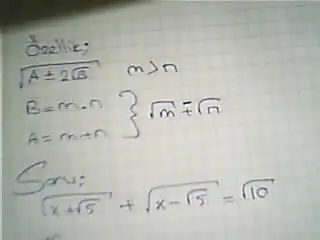 Özellik;
√(A ± 2√B) m>n
B = m.n
A = m+n } √m ∓ √n
Soru;
√(x+√5) + √(x-√5) = √10